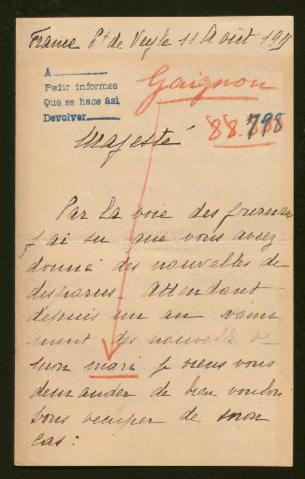 France Pt de Veyle 11 Août 191
A
Pedir informes
Que se hace asi
Devolver
Gaignon
88.798
Majesté
Par la voie des journaux
j'ai su que vous aviez
donné des nouvelles de
disparus. Attendant
depuis un an vaine
ment des nouvelles de
mon mari je viens vous
demander de bien vouloir
vous occuper de mon
cas :